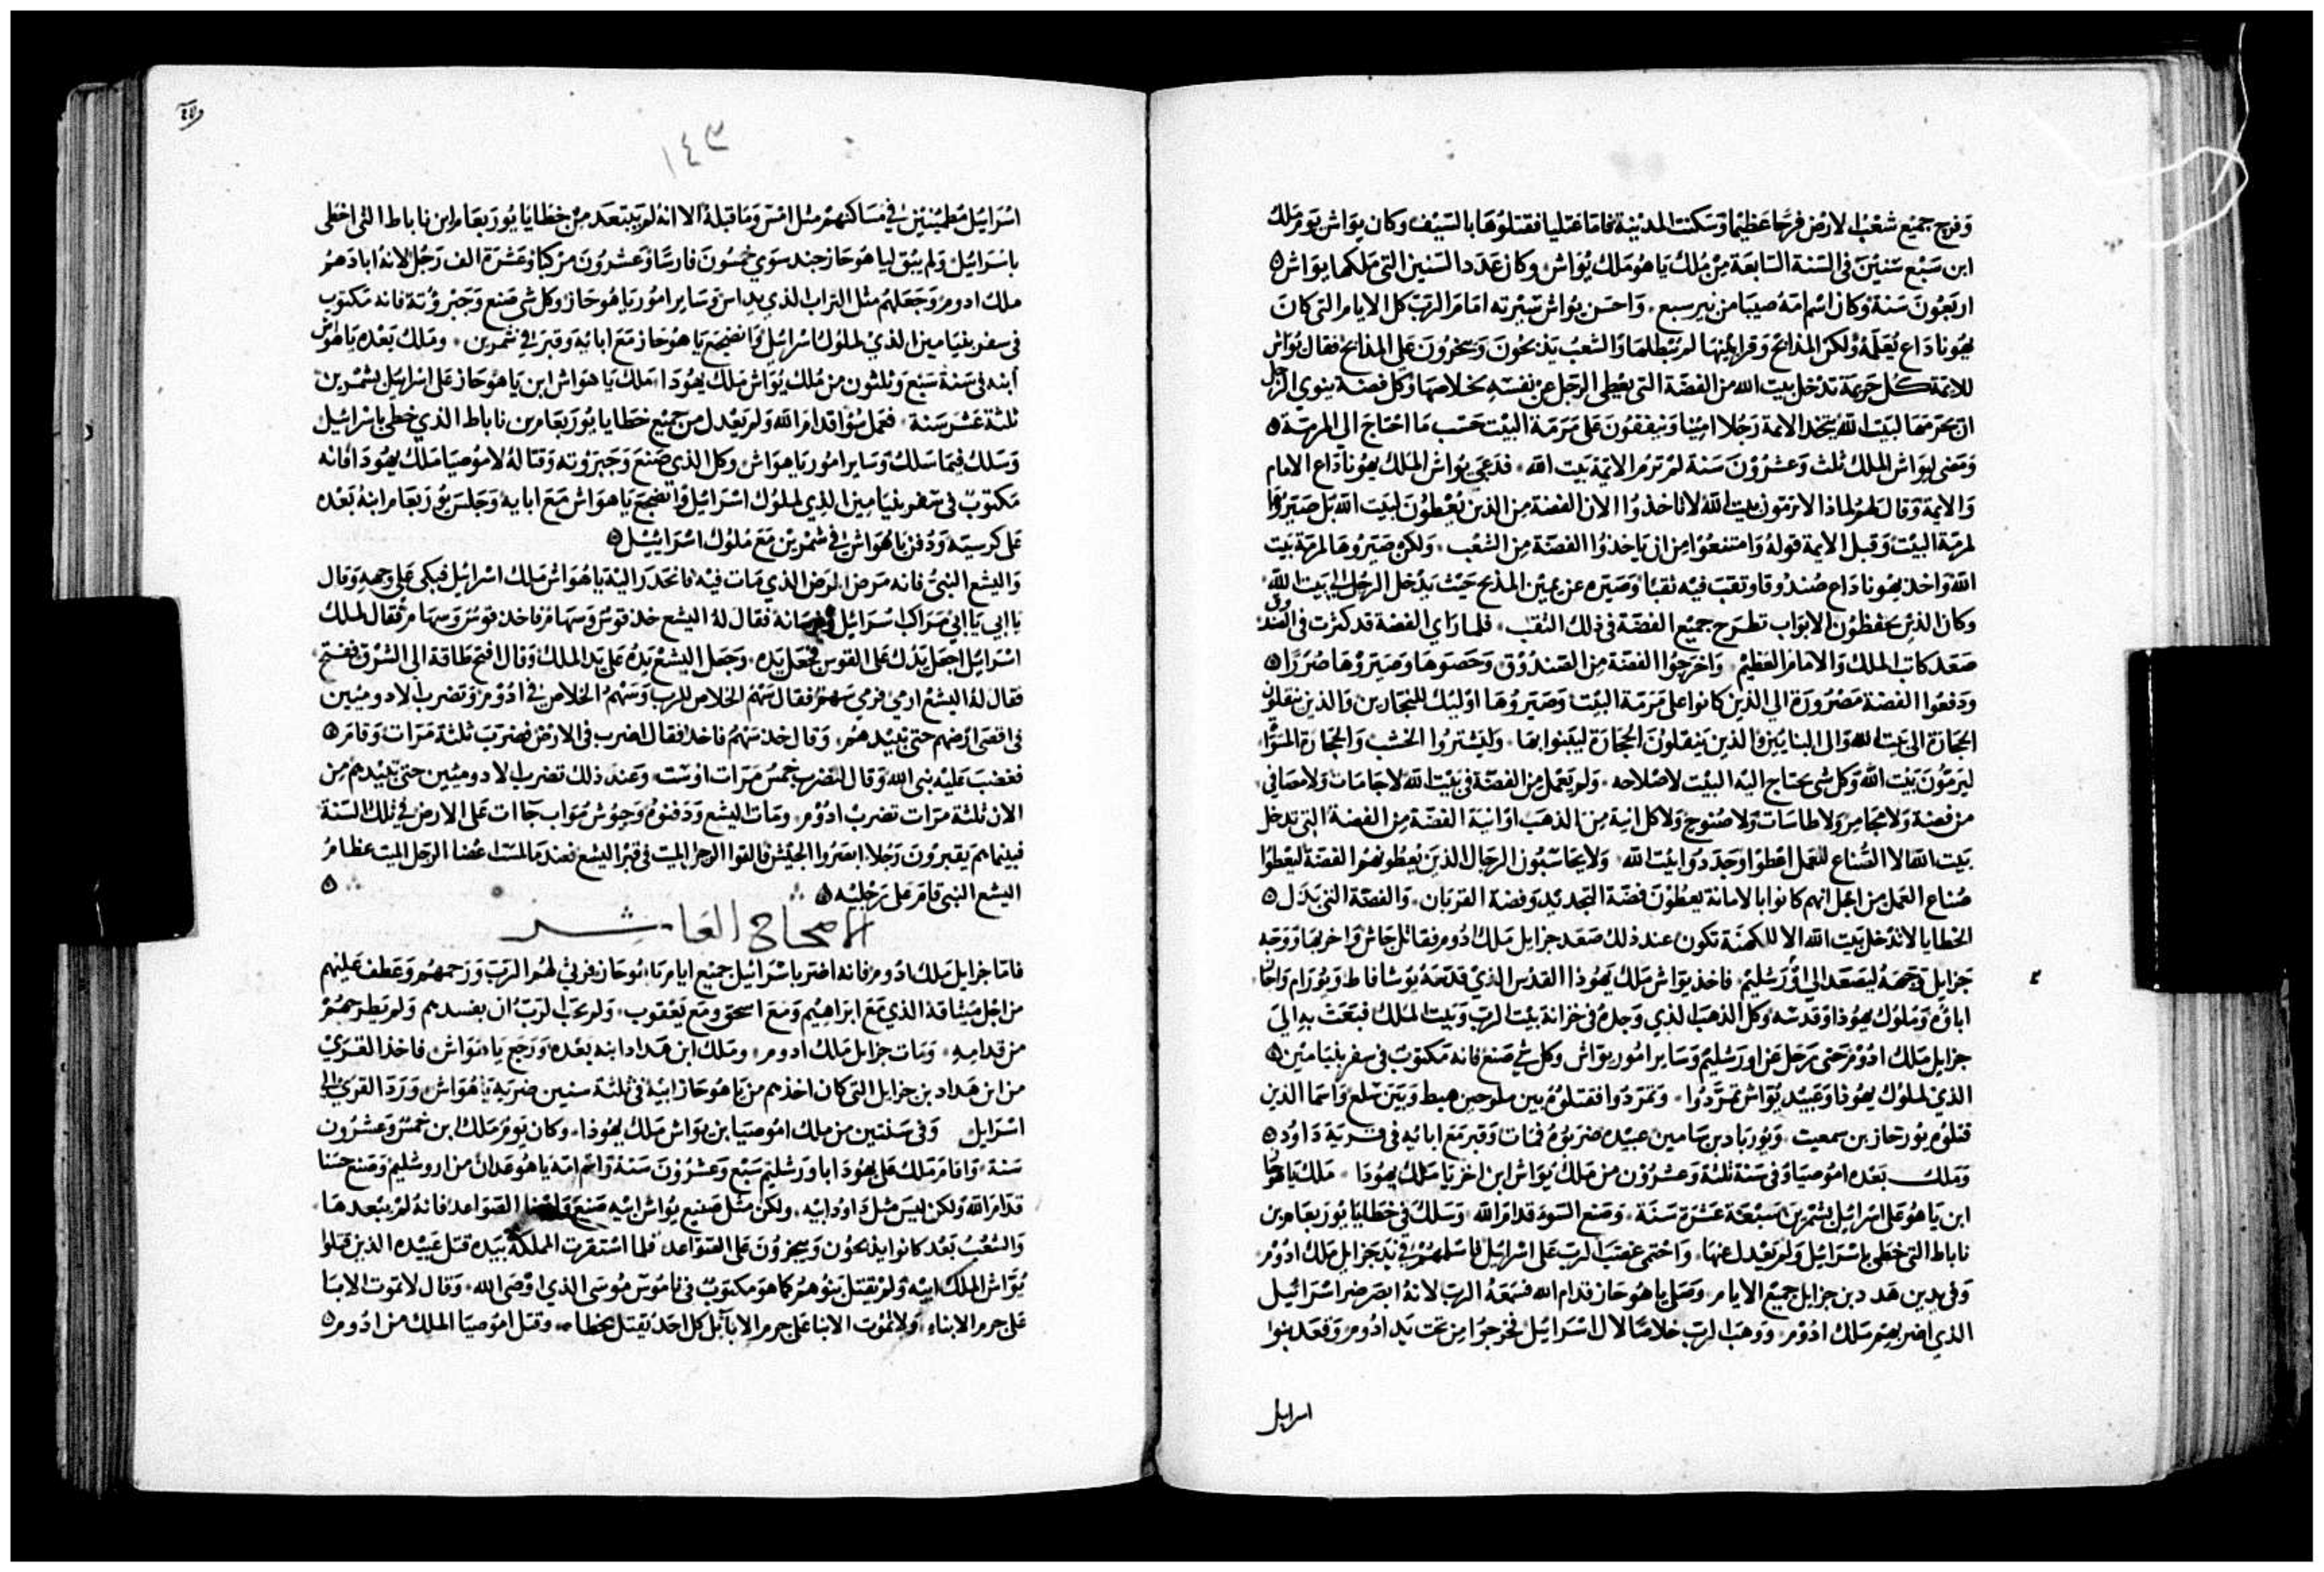 وفرح جميع شعب الارض فرحا عظيما وسكنت المدينة فاما عتليا فقتلوها بالسيف وكان يواش يوم ملك
ابن سبع سنين في السنة السابعة من ملك ياهو ملك يواش وكان عدد السنين التي ملكها يواش
اربعون سنة وكان اسم امه صيبا من بير سبع واحسن يواش سيرته امام الرب كل الايام التي كان
يهوناداع يعلمه ولكن المذابح وقرابينها لم تبطلها والشعب يذبحون ويبخرون على المذابح فقال يواش
للائمة كل حريمة تدخل بيت الله من الفضة التي يعطي الرجل عن نفسه بخلاصها وكل فضة ينوي الرجل
ان يحرمها لبيت الله يتخذ الائمة رجلا امينا وينفقون على مرمة البيت حسب ما احتاج الى المرمة
ومضى ليواش الملك ثلث وعشرون سنة لم ترم الائمة بيت الله فدعى يواش الملك يهوناداع الامام
والائمة وقال لهم لماذا لا ترمون بيت الله لا تاخذوا الان الفضة من الذين يعطون لبيت الله بل صيروها
لمرمة البيت وقبل الائمة قوله وامتنعوا من ان ياخذوا الفضة من الشعب ولكن صيروها لمرمة بيت
الله واخذ يهوناداع صندوقا وثقب فيه ثقبا وصيره عن يمين المذبح حيث يدخل الرجل الى بيت الله
وكان الذين يحفظون الابواب تطرح جميع الفضة في ذلك الثقب فلما راي الفضة قد كثرت في الصندوق
صعد كاتب الملك والامام العظيم واخرجوا الفضة من الصندوق وحصوها وصيروها صررا
ودفعوا الفضة مصرورة الى الذين كانوا على مرمة البيت وصيروها اوليك للنجارين والذين ينقلون
الحجارة الى بيت الله والى البنايين والذين ينقلون الحجارة ليبنوا بها وليشتروا الخشب والحجارة
ليرمون بيت الله وكل شي يحتاج اليه البيت لاصلاحه ولم يعمل من الفضة في بيت الله لا جامات ولا
من فضة ولا مجامر ولا طاسات ولا صنوج ولا كل انية من الذهب او انية الفضة من الفضة التي تدخل
بيت الله الا الصناع للعمل اعطوا وجددوا بيت الله ولا يحاسبون الرجال الذين يعطونهم الفضة ليعطوا
صناع العمل من اجل انهم كانوا بالامانة يعطون فضة التجديد وفضة القربان والفضة التي بدل
الخطايا لا تدخل بيت الله الا للكهنة تكون عند ذلك صعد حزايل ملك ادوم فقاتل جاش واخربها ووجه
حزايل وجهه ليصعد الى اورشليم فاخذ يواش ملك يهوذا القدس الذي قدسه يوشافاط ويورام واحاز
اباؤه وملوك يهوذا وقدسه وكل الذهب الذي وجده في خزانة بيت الرب وبيت الملك فبعث به الى
حزايل ملك ادوم حتى رحل عن اورشليم وساير امور يواش وكل شي صنع فانه مكتوب في سفر بنيامين
الذي لملوك يهوذا وعبيد يواش تمردوا وتمردوا فقتلوه بين ملوحين هبط وبين سلع واسما الذين
قتلوه يورتحاز بن سمعيت ويورباد بن سامين عبيده ضربوه فمات وقبر مع ابائه في قرية داوود
وملك بعده اموصيا وفي سنة ثلثة وعشرون من ملك يواش ابن اخزيا ملك يهودا ملك ياهوحاز
ابن ياهو على اسرائيل بشمرين سبعة عشرة سنة وصنع السوء قدام الله وسلك في خطايا يوربعام بن
ناباط التي خطي باسرائيل ولم يعدل عنها واحتمى غضب الرب على اسرائيل فاسلمهم في يد حزايل ملك ادوم
وفي يد بن هدد بن حزايل جميع الايام وصلى ياهوحاز قدام الله فسمعه الرب لانه ابصر ضر اسرائيل
الذي اضر بهم ملك ادوم ووهب الرب خلاصا لال اسرائيل فخرجوا من تحت يد ادوم وقعد بنوا
اسرايل
١٤٣
اسرائيل مطمئنين في مساكنهم مثل امس وما قبله الا انه لم يبتعد من خطايا يوربعام ابن ناباط التي اخطى
باسرائيل ولم يبق لياهوحاز جند سوي خمسون فارسا وعشرون مركبا وعشرة الف رجل لانه ابادهم
ملك ادوم وجعلهم مثل التراب الذي يداس وساير امور ياهوحاز وكل شي صنع وجبروته فانه مكتوب
في سفر بنيامين الذي لملوك اسرائيل وانضجع ياهوحاز مع ابائه وقبر في شمرين وملك بعده ياهواش
ابنه في سنة سبع وثلثون من ملك يواش ملك يهودا ملك ياهواش ابن ياهوحاز على اسرائيل بشمرين
ثلثة عشر سنة فعمل سؤا قدام الله ولم يعدل من جميع خطايا يوربعام بن ناباط الذي خطى باسرائيل
وسلك فيما سلك وساير امور ياهواش وكل الذي صنع وجبروته وقتاله لاموصيا ملك يهودا فانه
مكتوب في سفر بنيامين الذي لملوك اسرائيل وانضجع ياهواش مع ابايه وجلس يوربعام ابنه بعده
على كرسيه ودفن ياهواش في شمرين مع ملوك اسرائيل
واليشع النبي فانه مرض المرض الذي مات فيه فانحدر اليه ياهواش ملك اسرائيل فبكى على وجهه وقال
يا ابي يا ابي مراكب اسرائيل وفرسانه فقال له اليشع خذ قوس وسهام فاخذ قوس وسهام فقال لملك
اسرائيل اجعل يدك على القوس فجعل يده وجعل اليشع يده على يد الملك وقال افتح طاقة الى الشرق ففتح
فقال له اليشع ارمي فرمي سهم فقال سهم الخلاص للرب وسهم الخلاص في ادوم وتضرب الادوميين
في اقصى ارضهم حتى تبيدهم وقال خذ سهم فاخذ فقال اضرب في الارض فضرب ثلثة مرات وقام
فغضب عليه نبي الله وقال لتضرب خمس مرات او ست وعند ذلك تضرب الادوميين حتى تبيدهم من
الان ثلثة مرات تضرب ادوم ومات ليشع ودفنوه وجوش مواب جاات على الارض في تلك السنة
فبينما هم يقبرون رجلا ابصروا الجيش فالقوا الرجل الميت في قبر اليشع فعندما لمست اعضا الرجل الميت عظام
اليشع النبي قام على رجليه
الاصحاح العاشر
فاما حزايل ملك ادوم فانه اضر باسرائيل جميع ايام ياهوحاز فرثي لهم الرب ورحمهم وعطف عليهم
من اجل ميثاقه الذي مع ابراهيم ومع اسحق ومع يعقوب ولم يحب الرب ان يفسدهم ولم يطرحهم
من قدامه ومات حزايل ملك ادوم وملك ابن هداد ابنه بعده ورجع ياهواش فاخذ القري
من ابن هداد بن حزايل التي كان اخذهم من ياهوحاز ابيه في ثلثة سنين ضربه ياهواش ورد القري الى
اسرايل وفي سنتين من ملك اموصيا بن يواش ملك يهوذا وكان يوم ملك ابن خمس وعشرون
سنة واقام ملك على يهودا باورشليم سبع وعشرون سنة واسم امه ياهوعدان من اروشليم وصنع حسنا
قدام الله ولكن ليس مثل داود ابيه ولكن مثل صنيع يواش ابيه صنع القواعد فانه لم يبعدها
والشعب بعد كانوا يذبحون ويبخرون على القواعد فلما استقرت المملكة بيده قتل عبيده الذين قتلوا
يواش الملك ابيه ولم يقتل بنوهم كما هو مكتوب في ناموس موسى الذي اوصى الله وقال لا تموت الابا
على جرم الابناء ولا تموت الابنا على جرم الابا بل كل احد يقتل بخطاه وقتل اموصيا الملك من ادوم